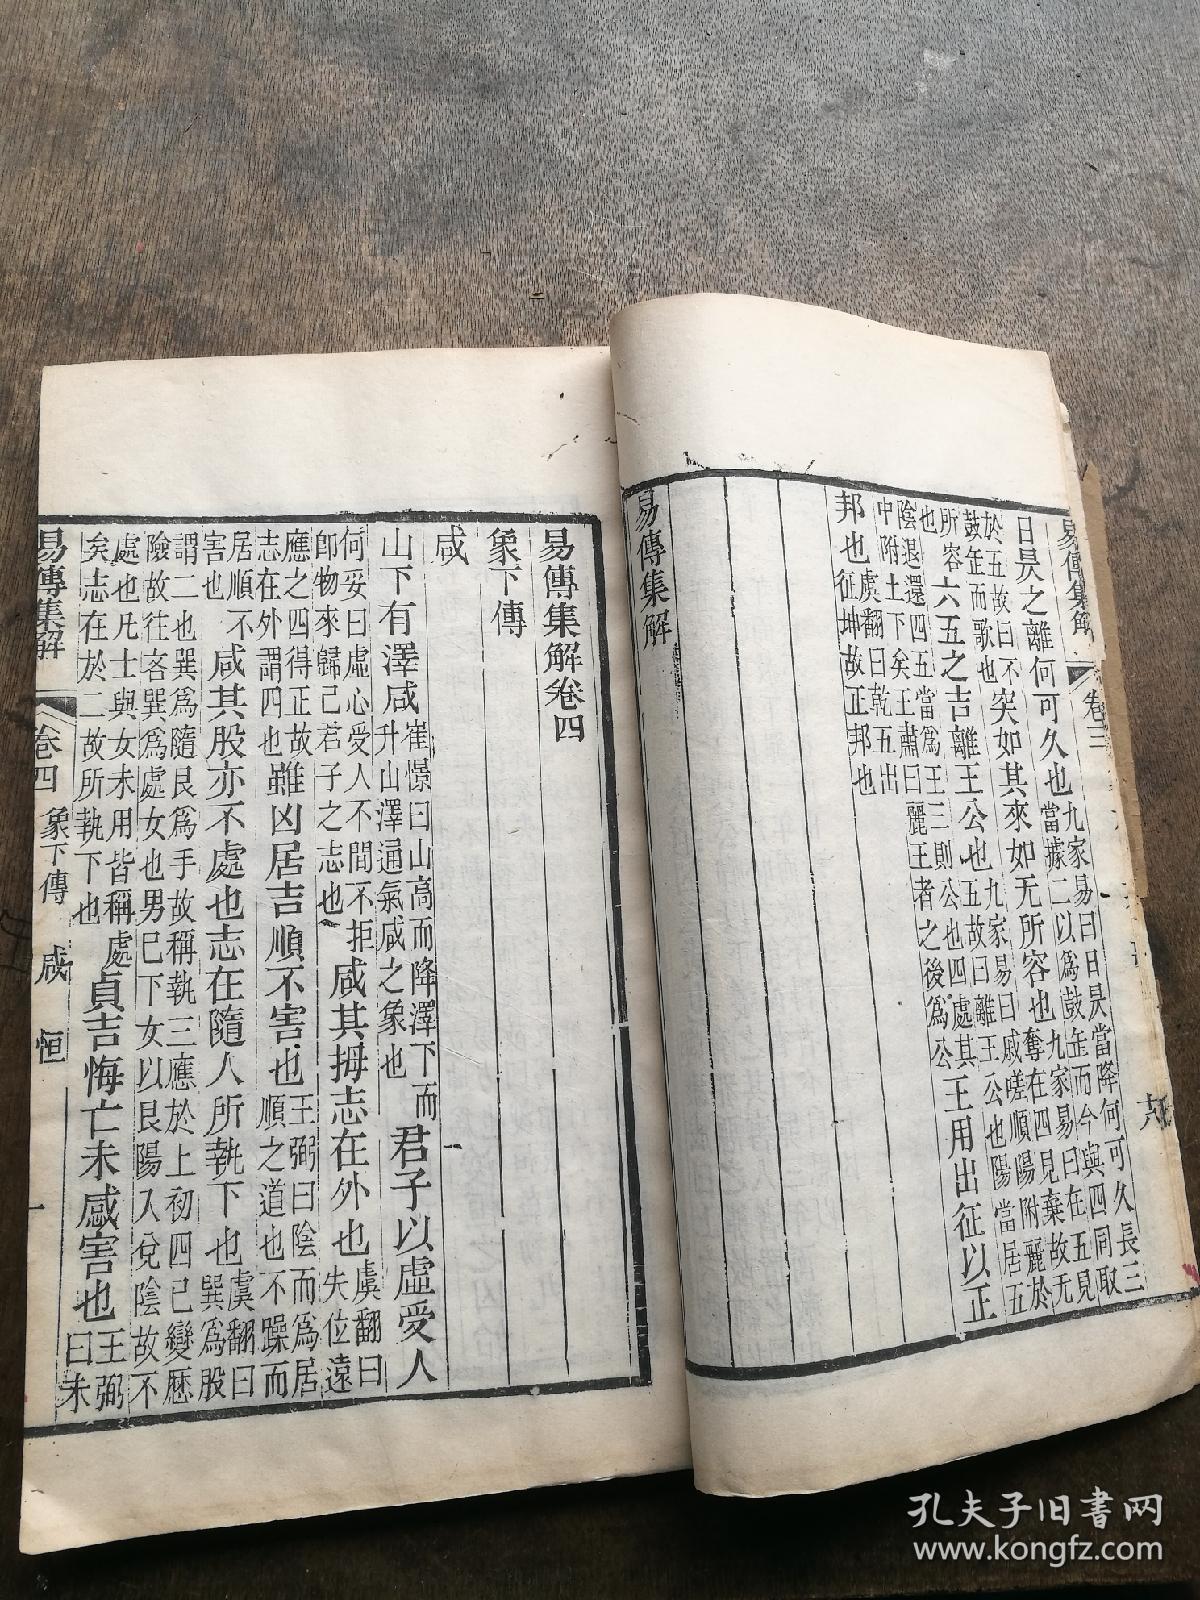 易傳集解
卷三
日昃之離何可久也九家易曰日昃當降何可久長三
當據二以爲鼓缶而今與四同取
於五故曰不
鼓缶而歌也
突如其來如无所容也九家易曰在五見
奪在四見棄故无
所容
也
六五之吉離王公也九家易曰戚嗟順陽附麗於
五故曰離王公也陽當居五
陰退還四五當爲王三則公也四處其
中附土下矣王肅曰麗王者之後爲公
王用出征以正
邦也虞翻曰乾五出
征坤故正邦也
易傳集解
易傳集解卷四
象下傳
咸
山下有澤咸崔憬曰山高而降澤下而
升山澤通氣咸之象也
君子以虛受人
何妥曰虛心受人不間不拒
卽物來歸己君子之志也
咸其拇志在外也虞翻曰
失位遠
應之四得正故
志在外謂四也
雖凶居吉順不害也王弼曰陰而爲居
順之道也不躁而
居順不
害也
咸其股亦不處也志在隨人所執下也虞翻曰
巽爲股
謂二也巽爲隨艮爲手故稱執三應於上初四已變歷
險故往吝巽爲處女也男已下女以艮陽入兌陰故不
處也凡士與女未用皆稱處
矣志在於二故所執下也
貞吉悔亡未感害也王弼
曰未
易傳集解
卷四
象下傳
咸
恒
一
孔夫子旧书网
www.kongfz.com